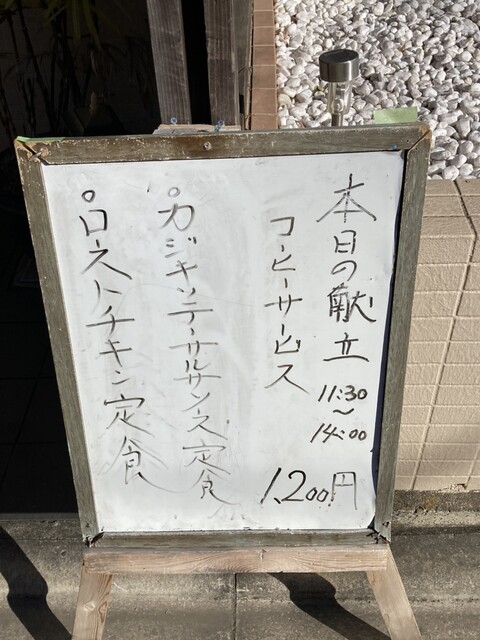 本日の献立
11:30
〜
14:00
コーヒーサービス
1,200円
○カジキソテーサルサソース定食
○ローストチキン定食